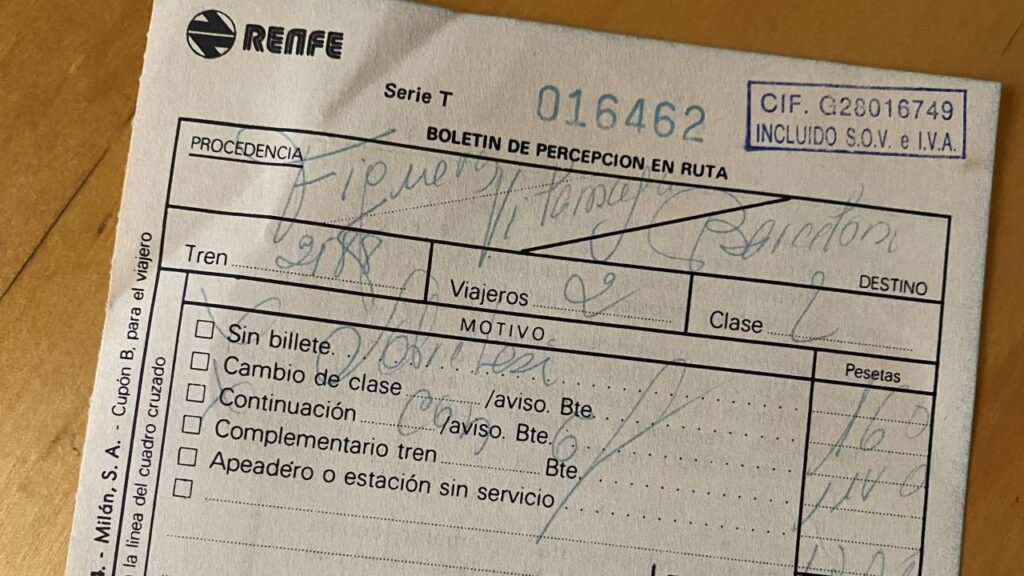 RENFE
Serie T 016462
CIF. G28016749
INCLUIDO S.O.V. e I.V.A.
BOLETIN DE PERCEPCION EN RUTA
PROCEDENCIA
Barcelona
DESTINO
Tren
Viajeros 2
Clase 2
MOTIVO
Pesetas
Sin billete.
Cambio de clase /aviso. Bte.
Continuación /aviso. Bte.
Complementario tren Bte.
Apeadero o estación sin servicio
Milán, S. A. - Cupón B, para el viajero
la línea del cuadro cruzado